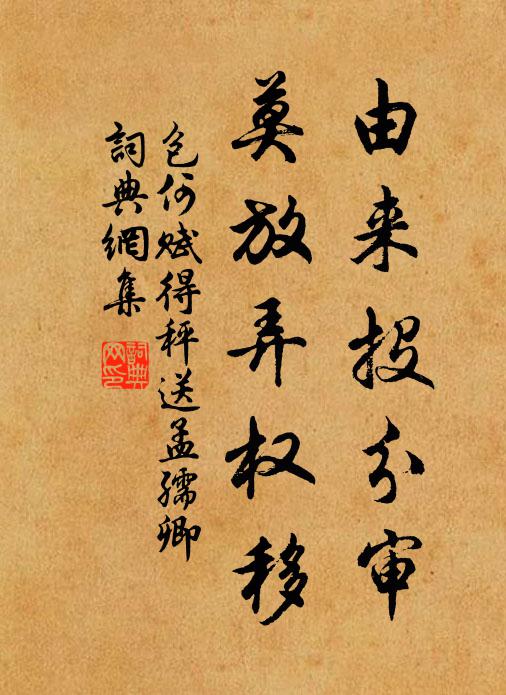 由来投分审
莫放弄权移
包何赋得秤送孟孺卿
詞典網集
詞典网印